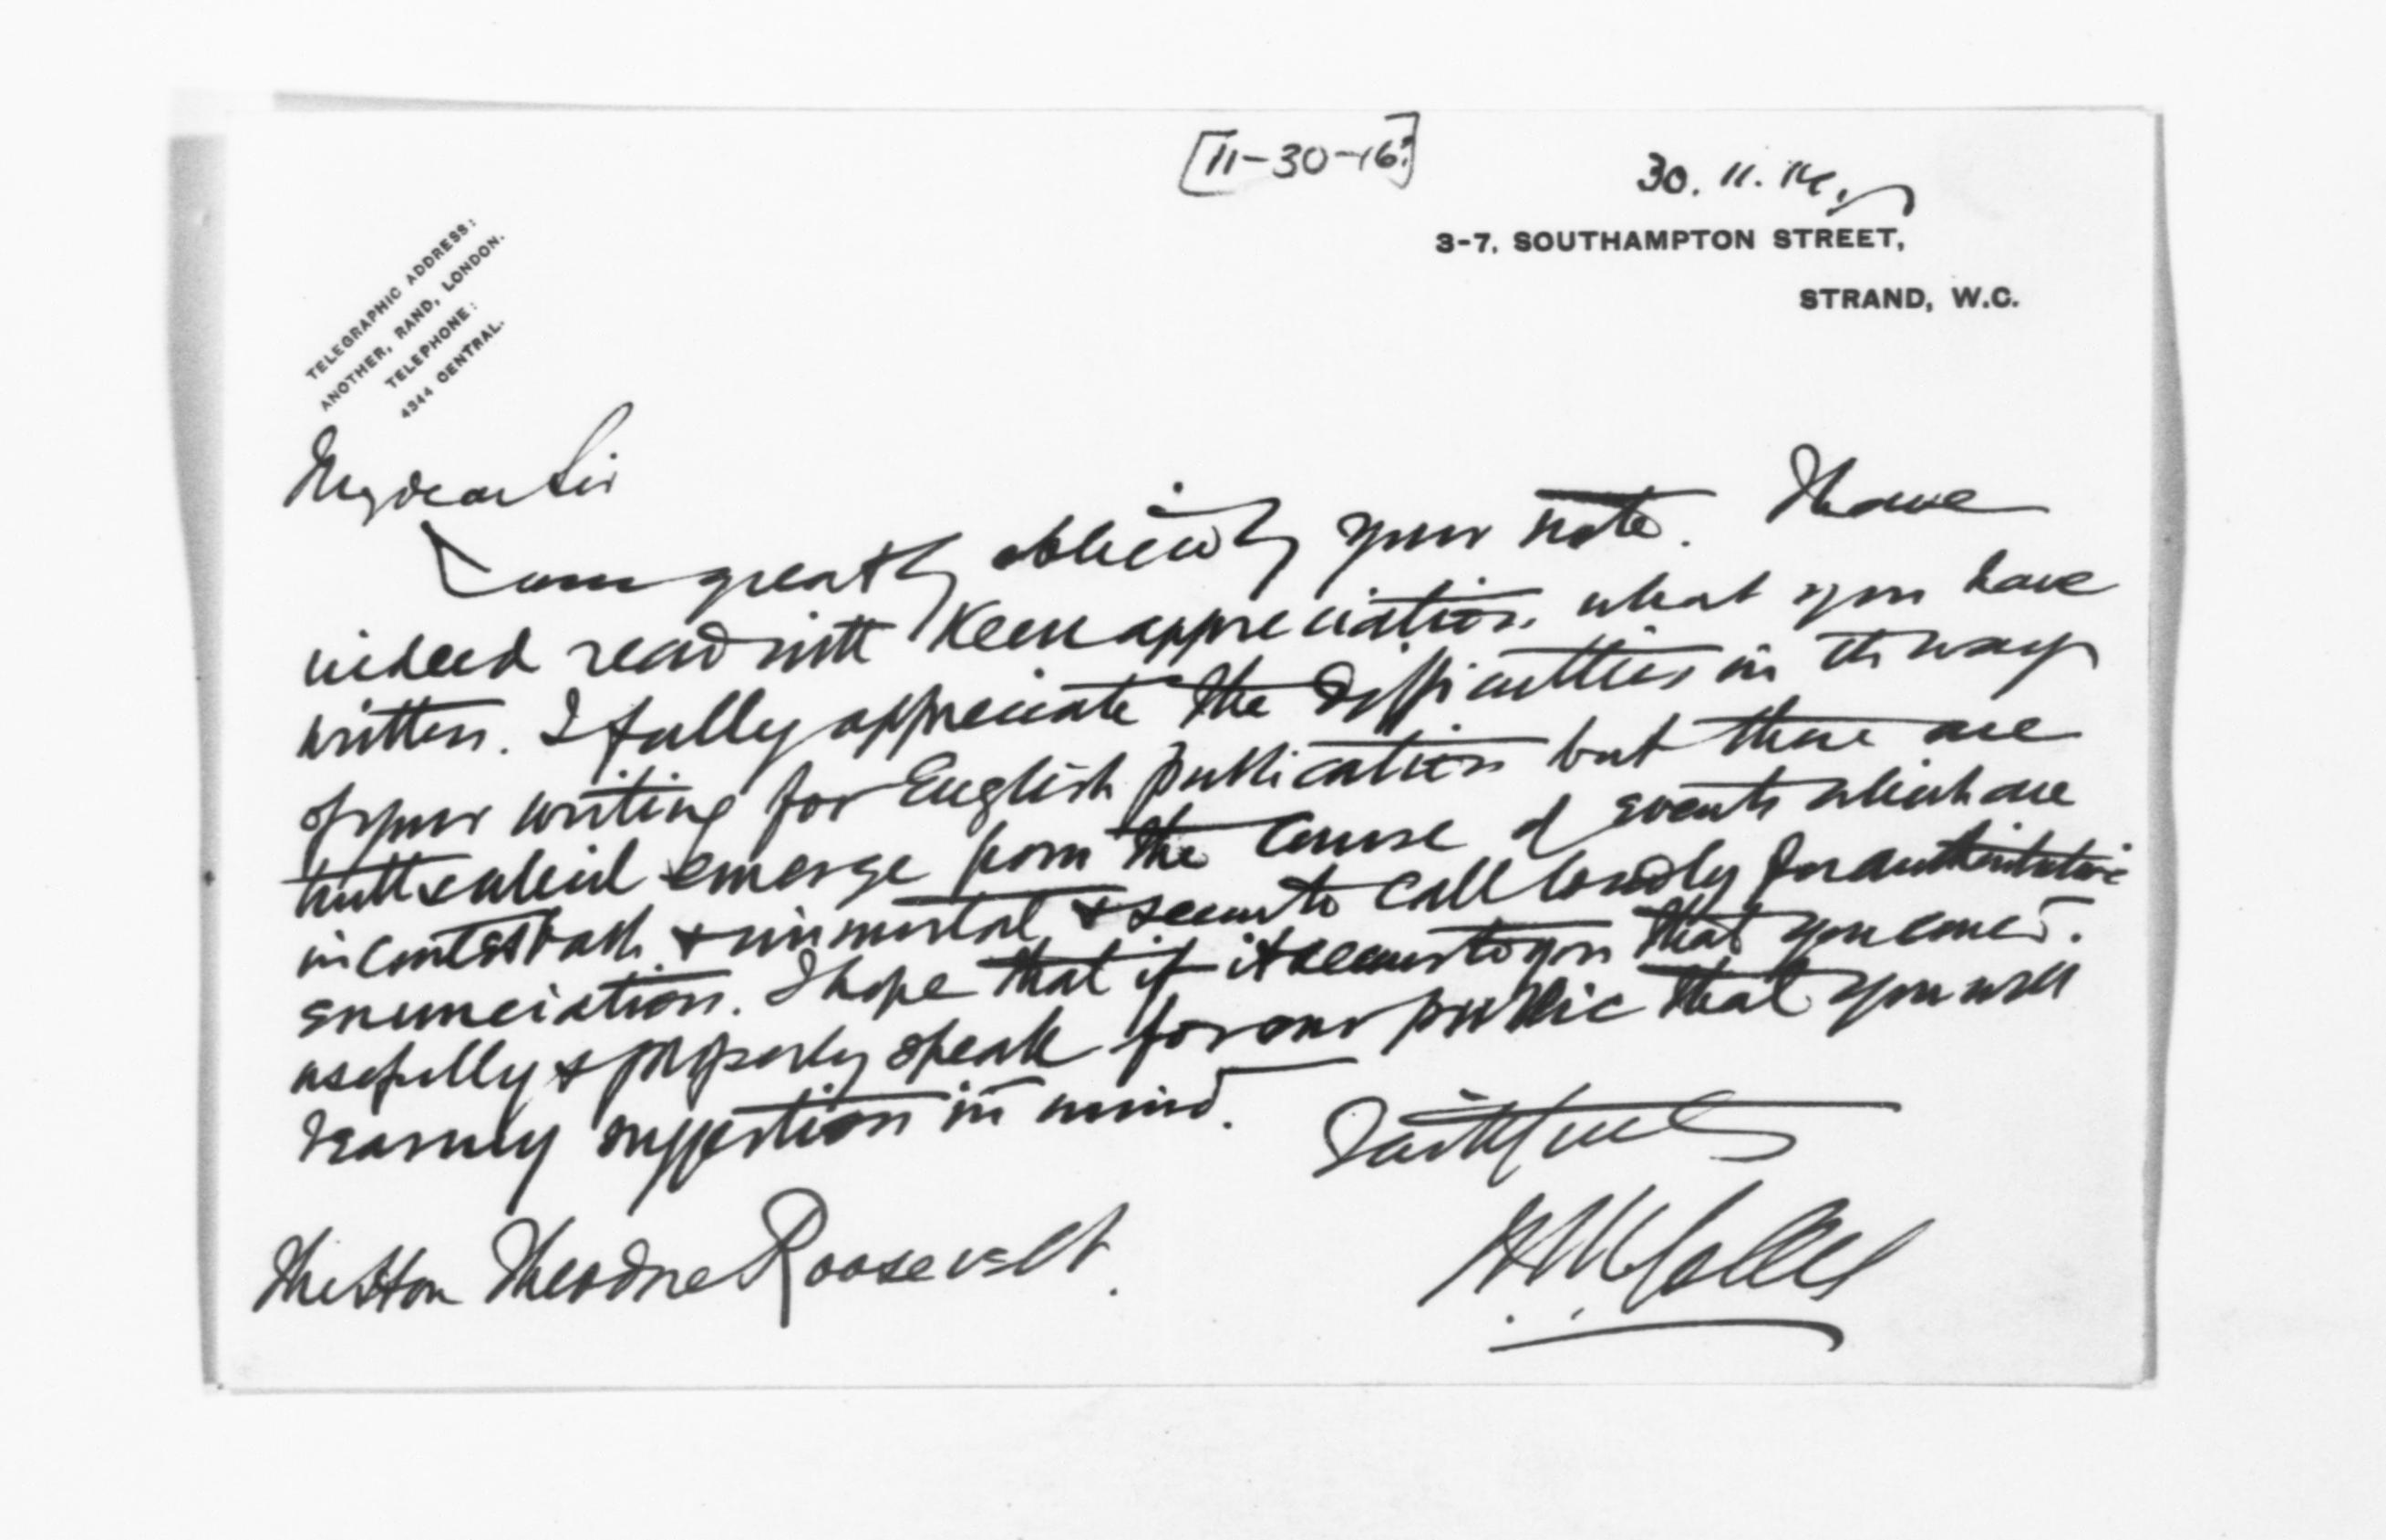 [11-30-16?]
30. 11. 14.
3-7, SOUTHAMPTON STREET,
STRAND, W.C.
TELEGRAPHIC ADDRESS:
ANOTHER, RAND, LONDON.
TELEPHONE:
4344 CENTRAL.
My dear Sir
I am greatly obliged by your note. I have
indeed read with keen appreciation what you have
written. I fully appreciate the difficulties in the way
of your writing for English publication but there are
truths which emerge from the course of events which are
incontestable & immortal & seem to call loudly for authoritative
enunciation. I hope that if it seems to you that you could
usefully & properly speak for our public that you will
bear my suggestion in mind.
Faithfully
The Hon Theodore Roosevelt.